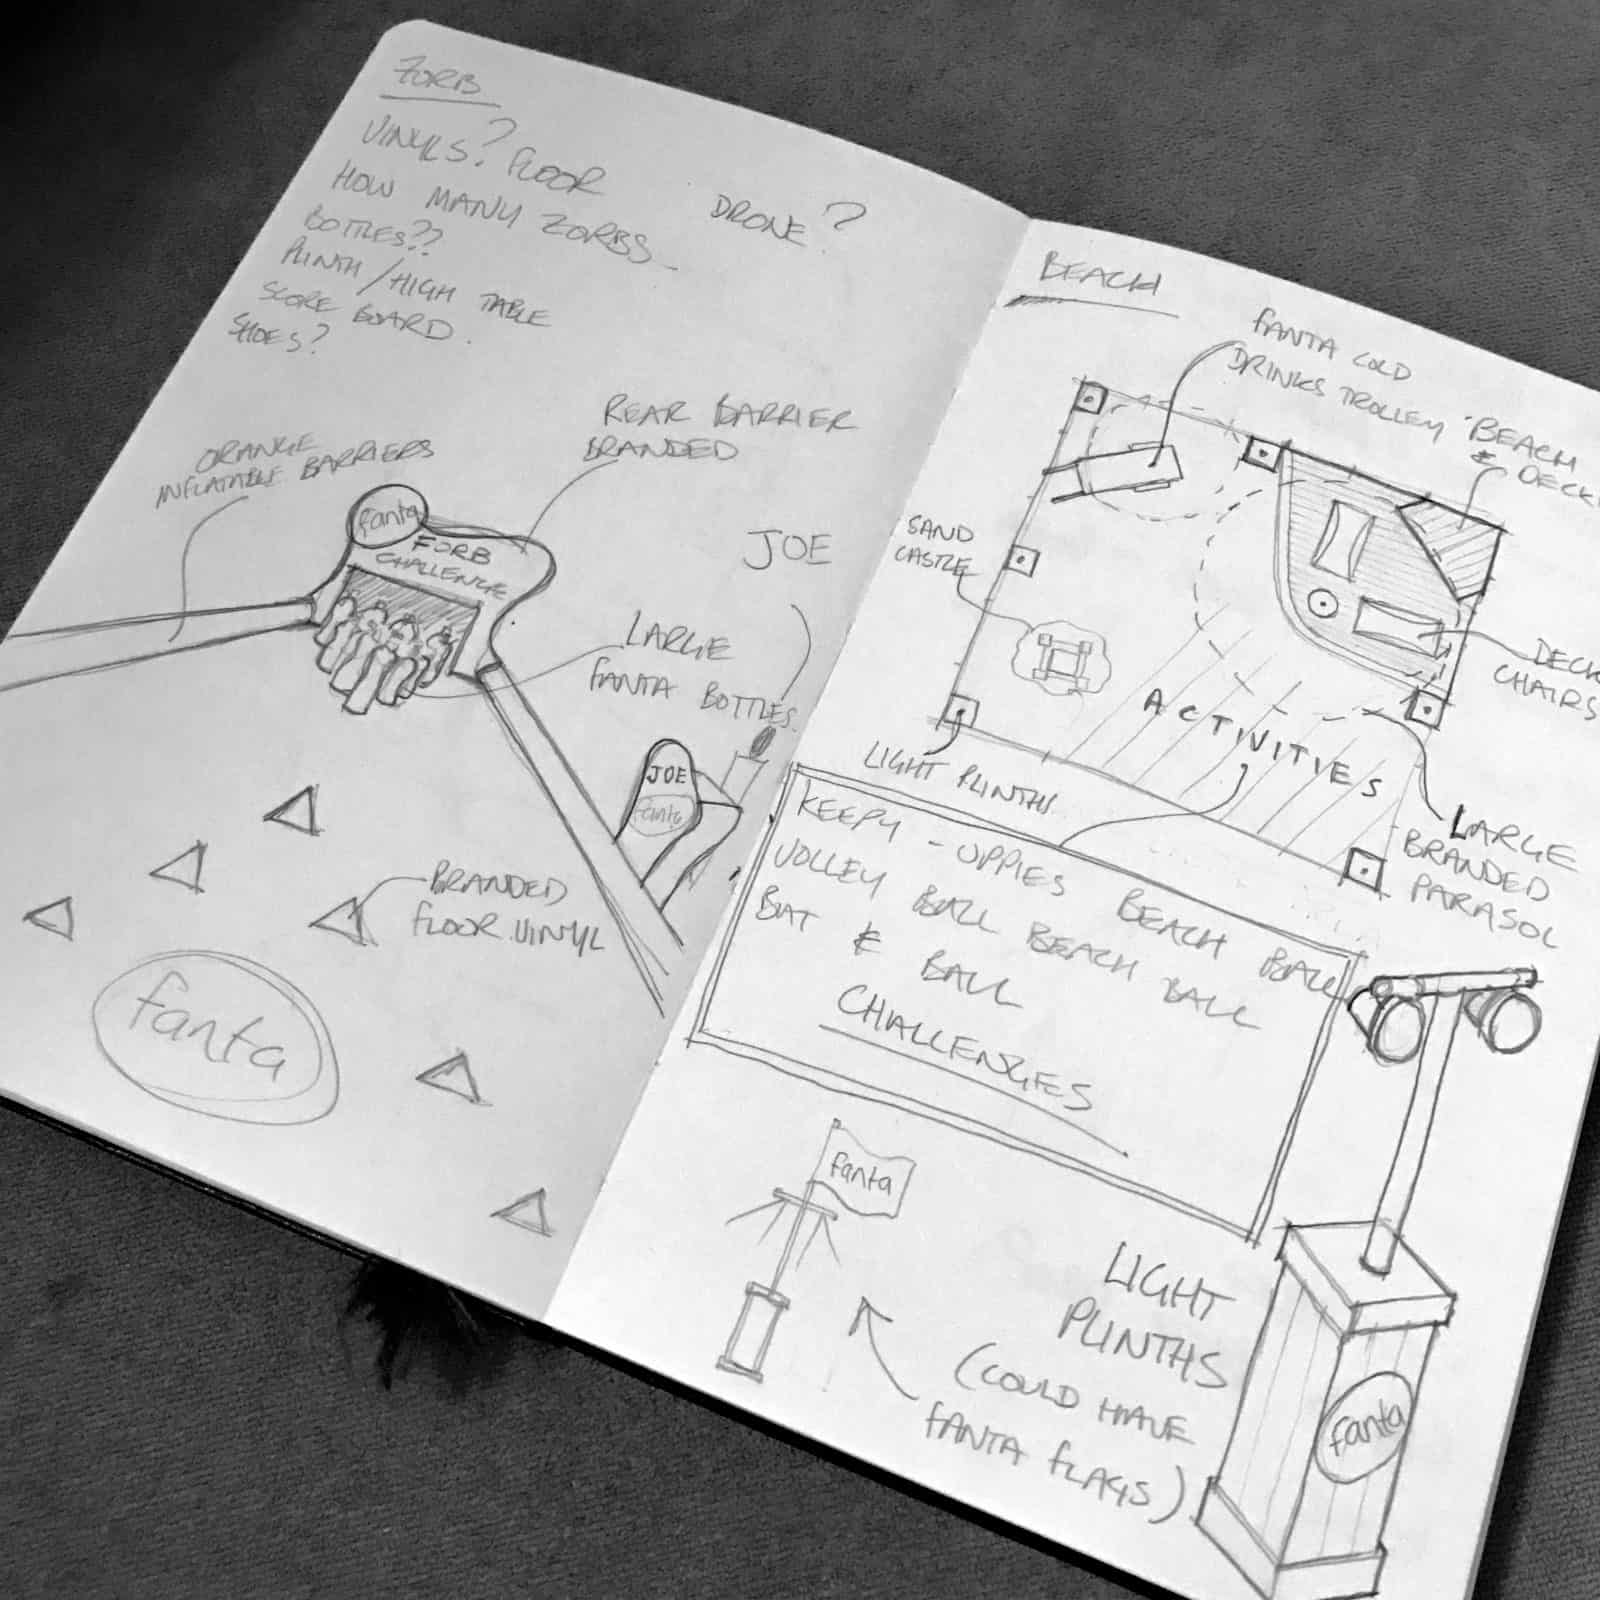 ZORB
VINYLS? FLOOR
HOW MANY ZORBS
BOTTLES??
PLINTH / HIGH TABLE
SCORE BOARD.
SHOES?
DRONE?
REAR BARRIER
BRANDED
ORANGE
INFLATABLE BARRIERS
fanta
ZORB
CHALLENGE
JOE
LARGE
FANTA BOTTLES.
JOE
fanta
BRANDED
FLOOR VINYL
fanta
BEACH
FANTA COLD
DRINKS TROLLEY
"BEACH
& DECK
SAND
CASTLE
DECK
CHAIRS
ACTIVITIES
LIGHT PLINTHS.
LARGE
BRANDED
PARASOL
KEEPY - UPPIES BEACH BALL
VOLLEY BALL BEACH BALL
BAT & BALL
CHALLENGES
fanta
LIGHT
PLINTHS
(COULD HAVE
FANTA FLAGS)
fanta